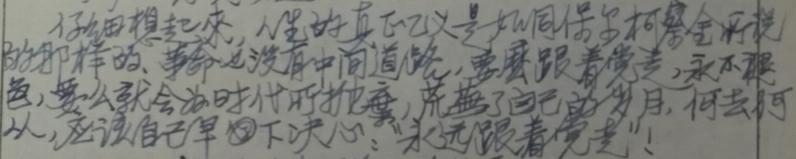 仔细想起来，人生的真正意义是如同保尔柯察金所说
的那样的、革命也没有中间道路，要麽跟着党走，永不褪
色，要么就会为时代所抛棄，荒蕪了自己的岁月，何去何
从，应该自己早日下决心：“永远跟着党走”！